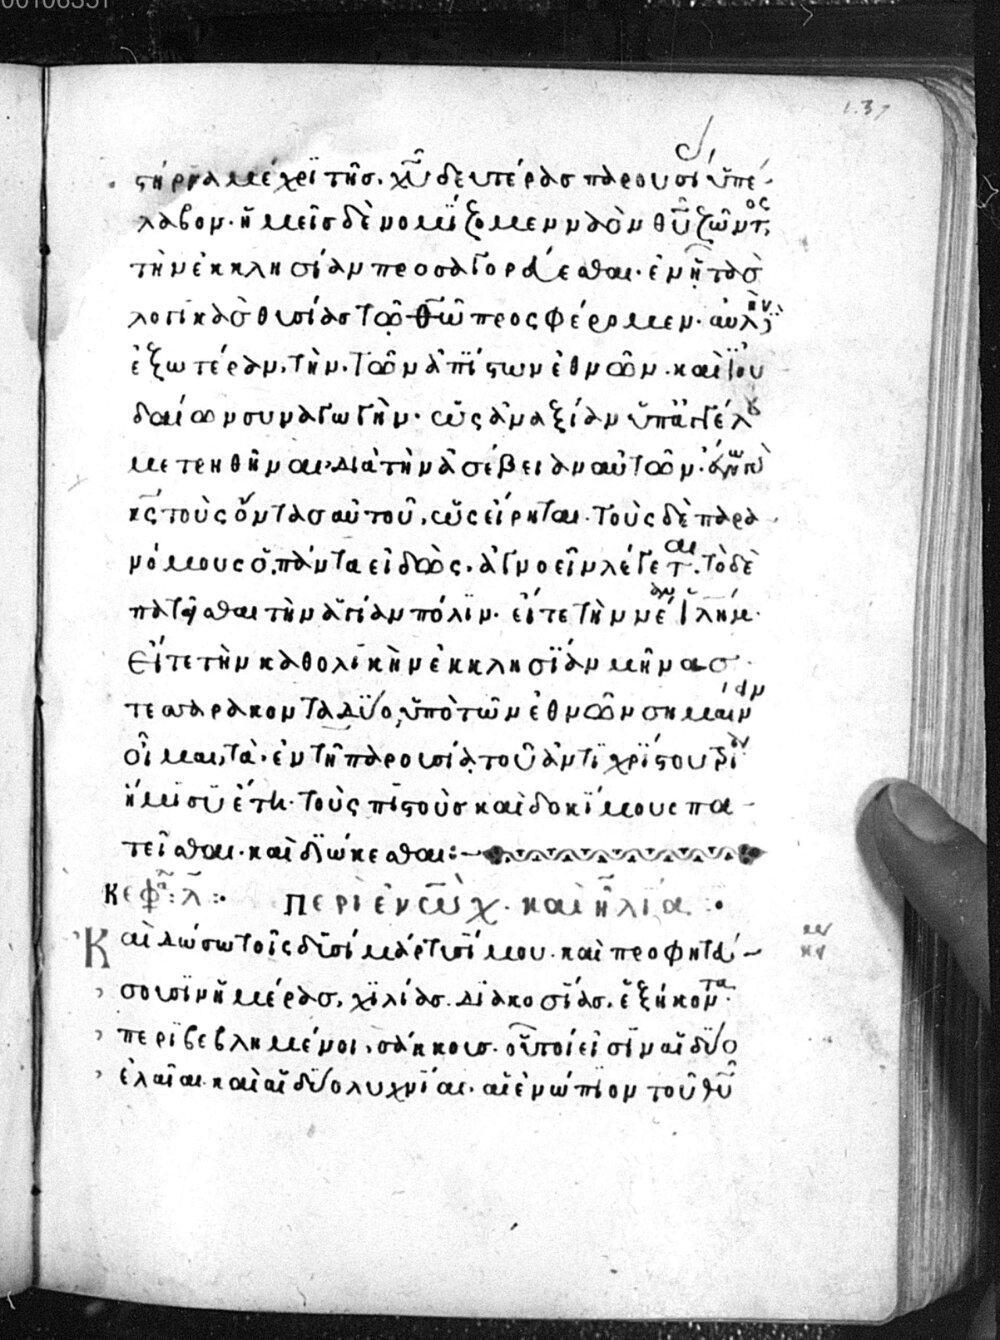 00106351
137
στήρια μέχρι τῆς χυ̅ δευτέρας παρουσί ὑπέ
λαβον· ἡμεῖς δὲ νομίζομεν ναὸν θυ̅ ζῶντος
τὴν ἐκκλησίαν προσαγορεύεσθαι· ἐν ἧ τὰς
λογικὰς θυσίας τῶ θω̅ προσφέρομεν· αὐλὴν
ἐξωτέραν, τὴν τῶν ἀπίστων ἐθνῶν· καὶ ἰου
δαίων συναγωγὴν· ὡς ἀναξίαν ὑπ ἀγγέλου
μετρηθῆναι, διὰ τὴν ἀσέβειαν αὐτῶν·
κς̅ τοὺς ὄντας αὐτοῦ, ὡς εἴρηται· τοὺς δὲ παρα
νόμους ὁ πάντα εἰδὼς, ἀγνοεῖν λέγεται· τὸ δὲ
πατῆσθαι τὴν ἁγίαν πόλιν· εἴτε τὴν νέαν ιλη̅μ·
εἴτε τὴν καθολικὴν ἐκκλησίαν μῆνας
τεσσαράκοντα δύο, ὑπὸ τῶν ἐθνῶν σημαίν
οἶμαι, τὰ ἐν τῆ παρουσία τοῦ ἀντιχρίστου τρί
ἥμισυ ἔτη· τοὺς πιστοὺς καὶ δοκίμους πα
τεῖσθαι· καὶ διώκεσθαι:–
κεφα: λ̅:· περὶ ἐνὼχ· καὶ ἠλία:·
Καὶ δώσω τοῖς δυσὶ μάρτυσί μου· καὶ προφητεύ
σουσιν ἡμέρας, χιλίας διακοσίας ἑξήκοντα·
περιβεβλημένοι, σάκκους· οὗτοί εἰσιν αἱ δύο
ἐλαῖαι· καὶ αἱ δύο λυχνίαι· αἱ ἐνώπιον τοῦ θυ̅